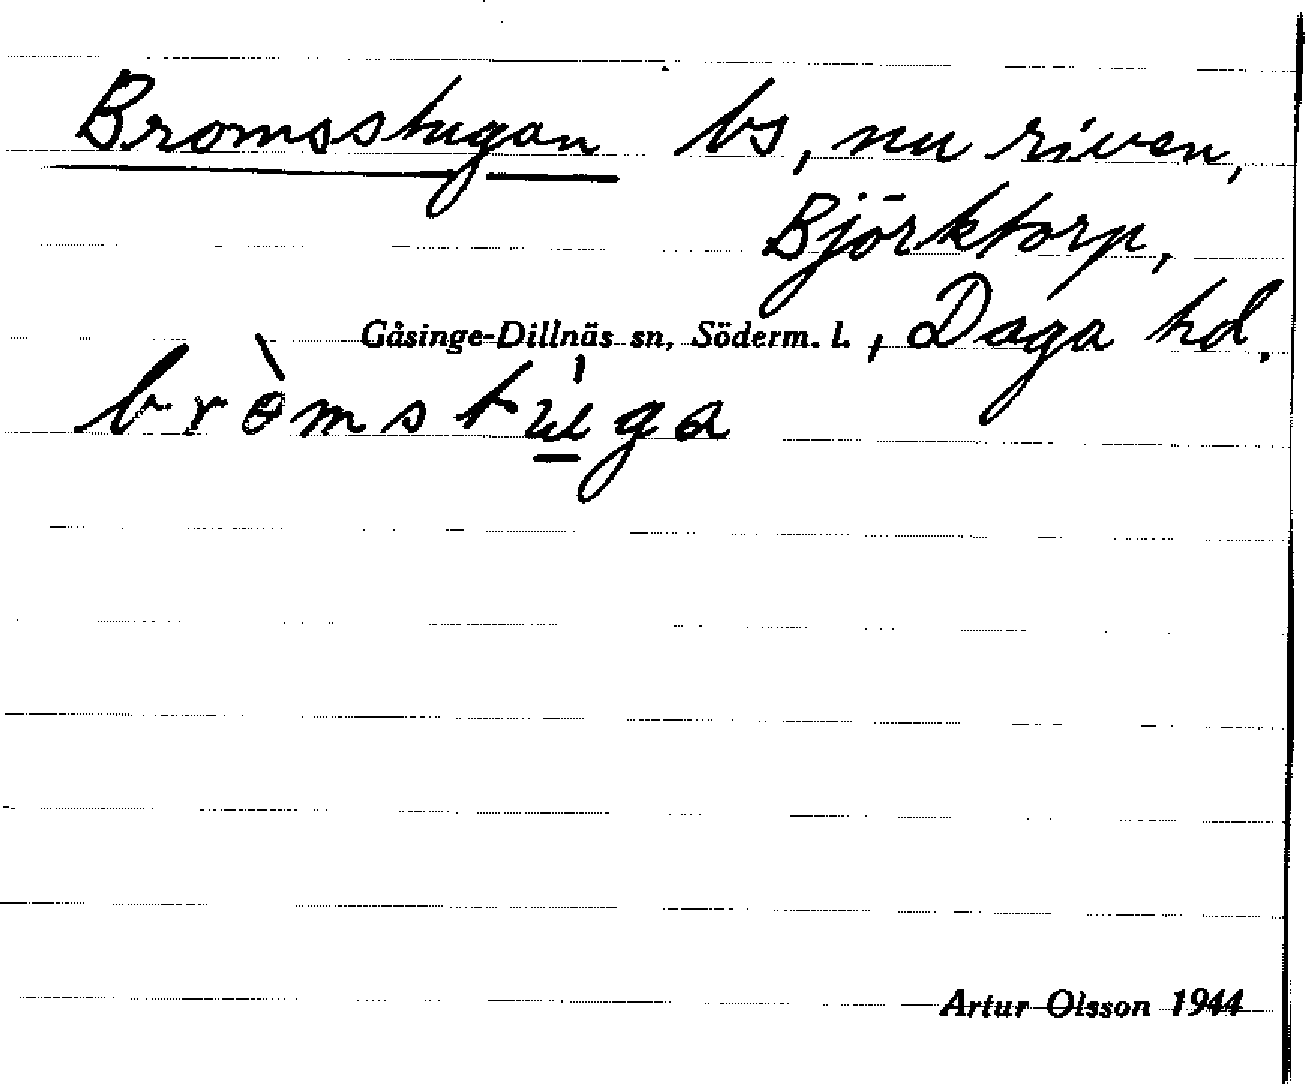 Bromsstugan bs, nu riven,
Björktorp,
Gåsinge-Dillnäs sn, Söderm. l., Daga hd.
bròmstu̲̍ga
Artur Olsson 1944